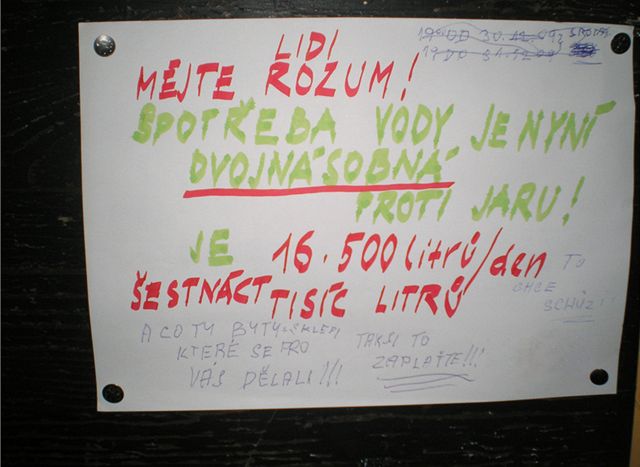 LIDI
MĚJTE ROZUM!
SPOTŘEBA VODY JE NYNÍ
DVOJNÁSOBNÁ
PROTI JARU!
JE 16.500 litrů/den
ŠESTNÁCT TISÍC LITRŮ
TO
CHCE
SCHŮZI!
A CO TY BYTY SKLEPI
KTERÉ SE PRO
VÁS DĚLALI!!!
TAK SI TO
ZAPLAŤTE!!!